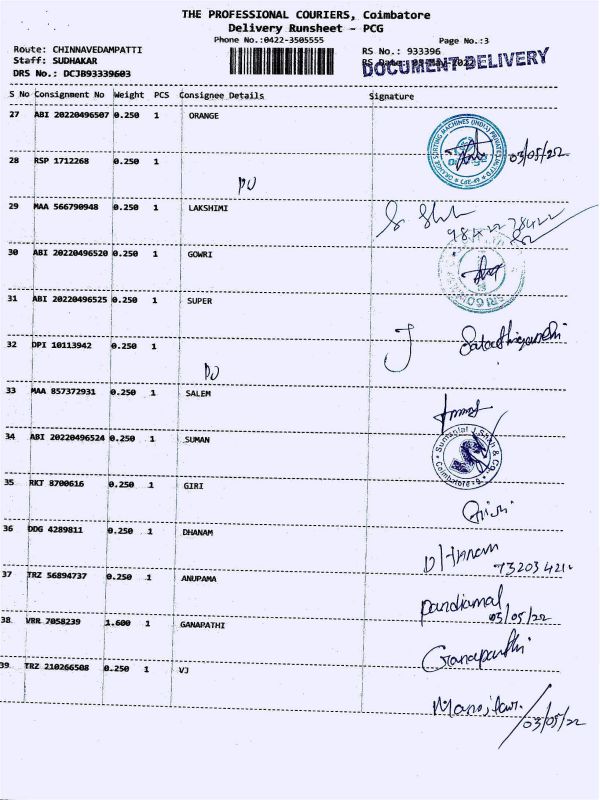 THE PROFESSIONAL COURIERS, Coimbatore
Delivery Runsheet - PCG
Phone No.:0422-3505555
Page No.:3
Route: CHINNAVEDAMPATTI
RS No.: 933396
Staff: SUDHAKAR
RS Date:
DOCUMENT DELIVERY
DRS No.: DCJB93339603
S No Consignment No Weight PCS Consignee Details Signature
27 ABI 20220496507 0.250 1 ORANGE
ORANGE SORTING MACHINES (INDIA) PRIVATE LIMITED
03/05/22
28 RSP 1712268 0.250 1
DU
29 MAA 566790948 0.250 1 LAKSHIMI
30 ABI 20220496520 0.250 1 GOWRI
31 ABI 20220496525 0.250 1 SUPER
32 DPI 10113942 0.250 1
DU
33 MAA 857372931 0.250 1 SALEM
34 ABI 20220496524 0.250 1 SUMAN
Sumanlal J Shah & Co.
Coimbatore - 9.
35 RKT 8700616 0.250 1 GIRI
36 DDG 4289811 0.250 1 DHANAM
DHANAM
37 TRZ 56894737 0.250 1 ANUPAMA
Pandiamal,
03/05/22
38 VRR 7058239 1.600 1 GANAPATHI
Ganapathi
39 TRZ 210266508 0.250 1 VJ
03/05/22